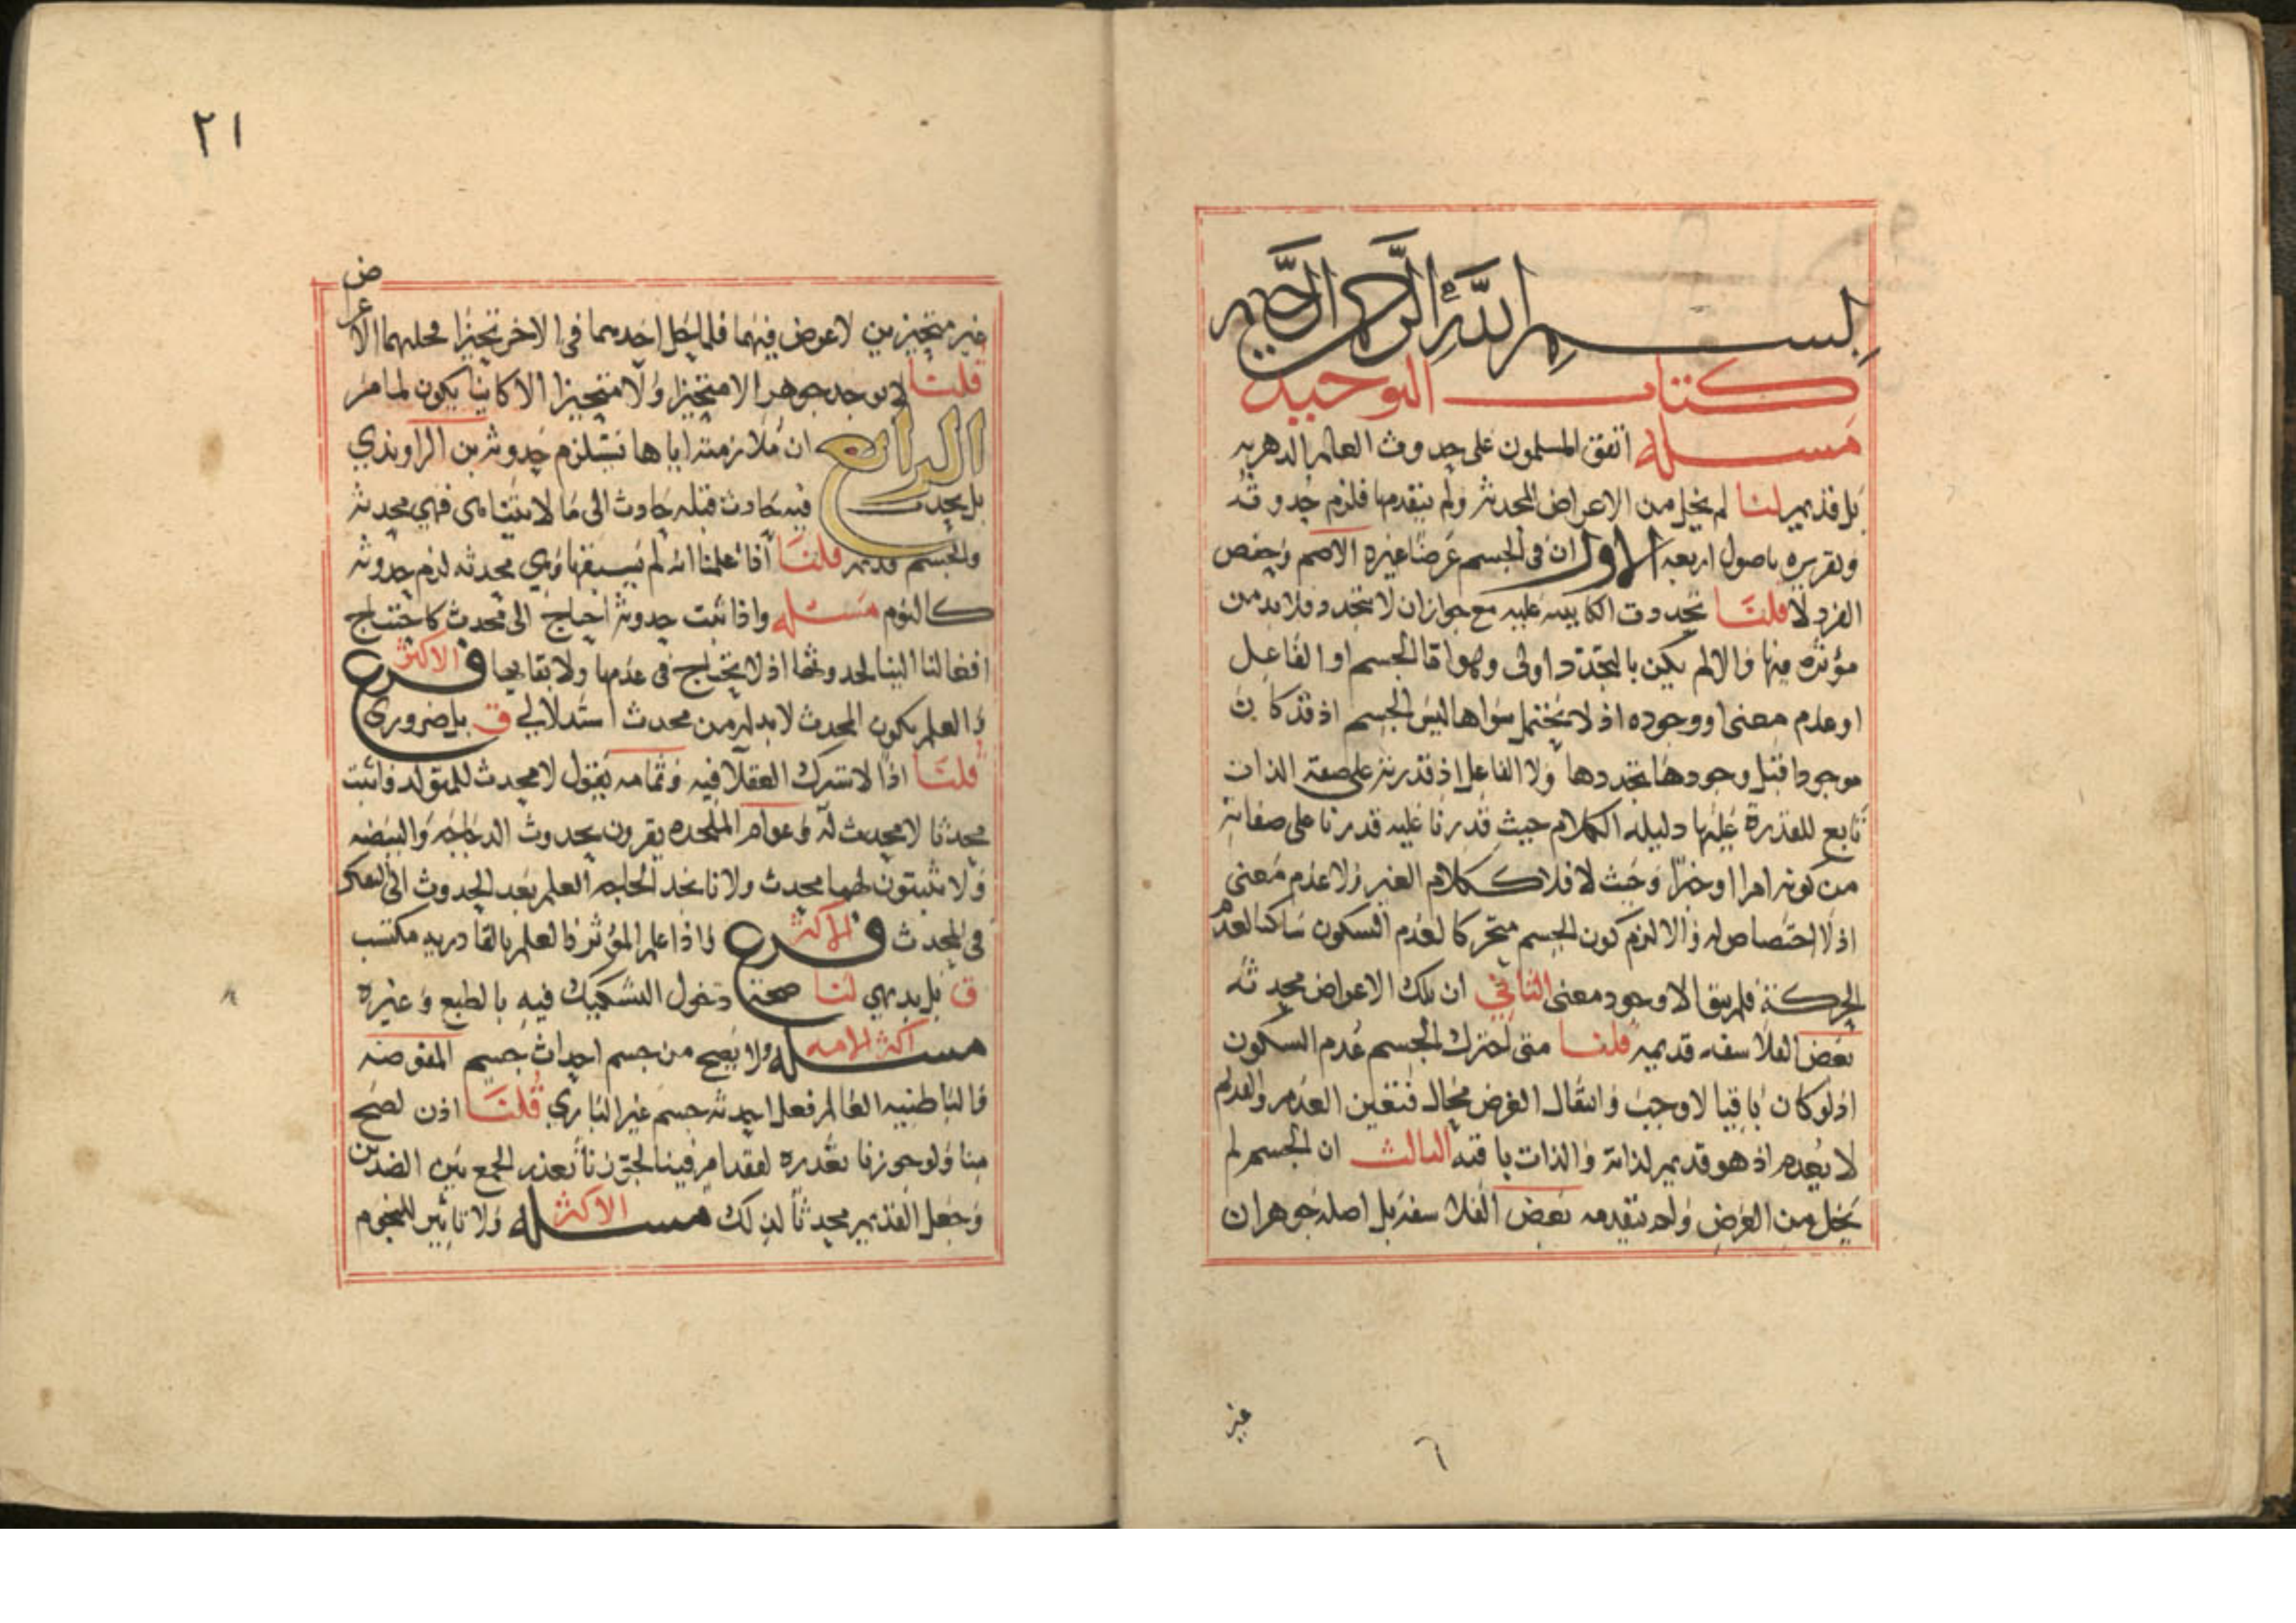 بسم الله الرحمن الرحيم
كتاب التوحيد
مسئله اتفق المسلمون على حدوث العالم الدهريه
بل قديم لنا لم يخل من الاعراض المحدثه ولم يتقدمها فلزم حدوثه
وتقريره باصول اربعه الاول ان فى الجسم عرضا غيره الاصم وحفص
الفرد لا قلنا تجددت الكاينيه عليه مع جواز ان لا تتجدد فلا بد من
مؤثره فيها والا لم يكن بالتجدد اولى وهو اما الجسم او الفاعل
او عدم معنى او وجوده اذ لا يحتمل سواها ليس الجسم اذ قد كان
موجودا قبل وجودها بتجددها ولا الفاعل اذ قدرته على صفة الذات
تابع للقدرة عليها دليله الكلام حيث قدرنا عليه قدرنا على صفاته
من كونه امرا او خبرا وحيث لا فلا ككلام الغير ولا عدم معنى
اذ لا اختصاص له والا لزم كون الجسم متحركا لعدم السكون ساكنا لعدم
الحركة فلم يبق الا وجود معنى الثاني ان تلك الاعراض محدثه
بعض الفلاسفه قديمه قلنا متى احترك الجسم عدم السكون
اذ لو كان باقيا لاوجب وانتقال العرض محال فتعين العدم والقديم
لا يعدم اذ هو قديم لذاته والذات باقيه الثالث ان الجسم لم
يخل من العرض ولم يتقدمه بعض الفلاسفه بل اصله جوهران
غير
٦
٢١
غير متحيزين لا عرض فيهما فلما حل احدهما فى الاخر تحيزا فحلهما الاعراض
قلنا لا يوجد جوهر الا متحيزا ولا متحيزا الا كاينا بكون لما مر
الرابع ان ملازمته اياها تستلزم حدوثه بن الراوندي
بل يحدث فيه حادث قبله حادث الى ما لا يتناهى فهي محدثه
والجسم قديم قلنا اذا علمنا انه لم يسبقها وهي محدثه لزم حدوثه
كالتوم مسئله واذا ثبت حدوثه احتاج الى محدث كاحتياج
افعالنا الينا لحدوثها اذ لا يحتاج فى عدمها ولا بقايها فرع الاكثر
والعلم بكون المحدث لا بد له من محدث استدلالي ق بل ضروري
قلنا اذا لاشترك العقلا فيه وثمامه يقول لا محدث للمتولد فاثبت
محدثا لا محدث له وعوام الملحده يقرون بحدوث الدجاجه والبيضه
ولا يثبتون لهما محدث ولانا نجد الحاجه العلم بعد الحدوث الى الفكر
فى المحدث فرع الاكثر واذا علم المؤثر فالعلم بالقادريه مكتسب
ق بل بديهي لنا صحة دخول التشكيك فيه بالطبع وغيره
مسئله اكثر الامه ولا يصح من جسم احداث جسم المفوضه
والباطنيه العالم فعل احدثه جسم غير الباري قلنا اذن لصح
منا ولو جوزنا تعذره لفقد امر فينا لجوزنا تعذر الجمع بين الضدين
وجعل القديم محدثا لذلك مسئله الاكثر ولا تاثير للنجوم